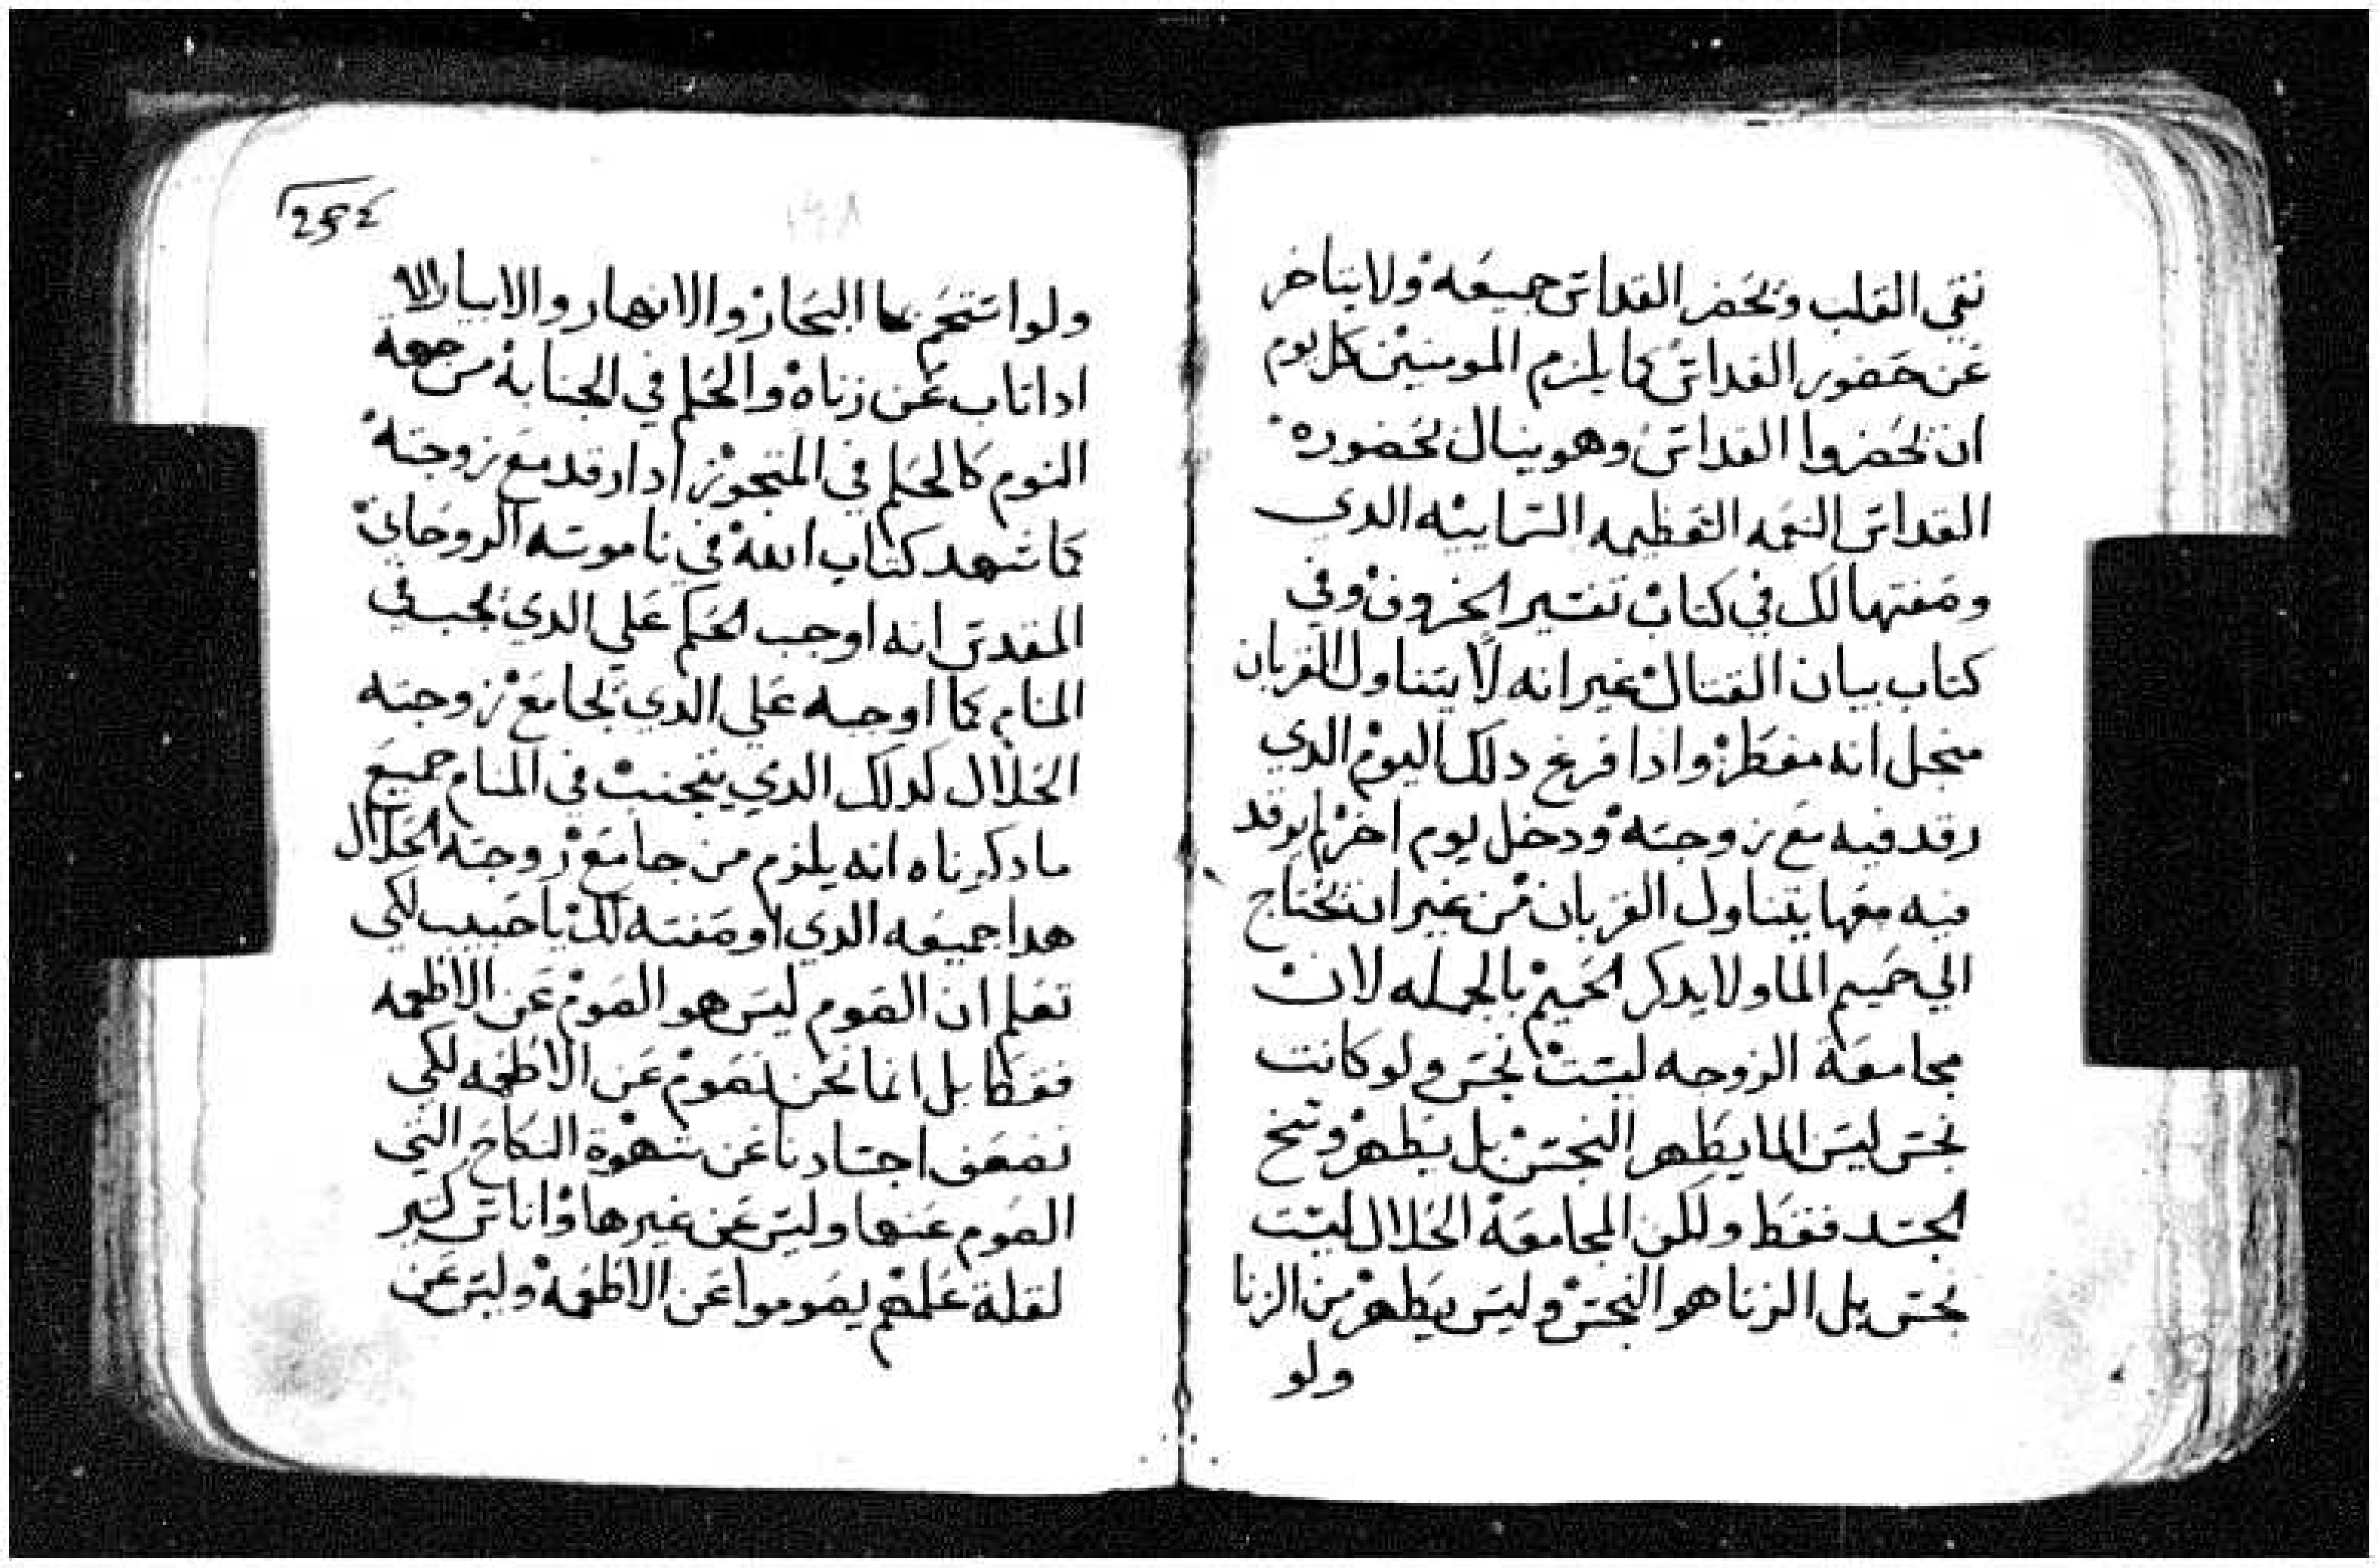 نقي القلب ويحضر القداس جميعه ولا يتاخر
عن حضور القداس كما يلزم المومنين كل يوم
ان يحضروا القداس وهو ينال بحضوره
القداس النعمه العظيمه السراييه الدي
وصفتها لك في كتاب تفسير الحروف وفي
كتاب بيان القتال غير انه لا يتناول القربان
منجل انه مفطر وادا فرغ دلك اليوم الدي
رقد فيه مع زوجته ودخل يوم اخر لم يرقد
فيه معها يتناول القربان من غير ان يحتاج
الي حميم الما ولا يدكر الحميم بالجمله لان
مجامعة الزوجه ليست نجس ولو كانت
نجس ليس الما يطهر النجس بل يطهر وسخ
الجسد فقط ولكن المجامعة الحلال ليست
نجس بل الزنا هو النجس وليس يطهر من الزنا
ولو
252
١٣٨
ولو استحم بما البحار والانهار والابيار الا
ادا تاب عن زناه والحكم في الجنابة من جهة
النوم كالحكم في المتجوز ادا رقد مع زوجته
كما شهد كتاب الله في ناموسه الروحاني
المقدس انه اوجب الحكم علي الدي يجنب في
المنام كما اوجبه علي الدي يجامع زوجته
الحلال كدلك الدي يتجنب في المنام جميع
ما دكرناه انه يلزم من جامع زوجته الحلال
هدا جميعه الدي اوصفته لك يا حبيب لكي
تعلم ان الصوم ليس هو الصوم عن الاطعمه
فقط بل انما نحن نصوم عن الاطعمه لكي
نضعف اجسادنا عن شهوة النكاح التي
الصوم عنها وليس عن غيرها واناس كتير
لقلة علمهم يصوموا عن الاطعمة وليس عن